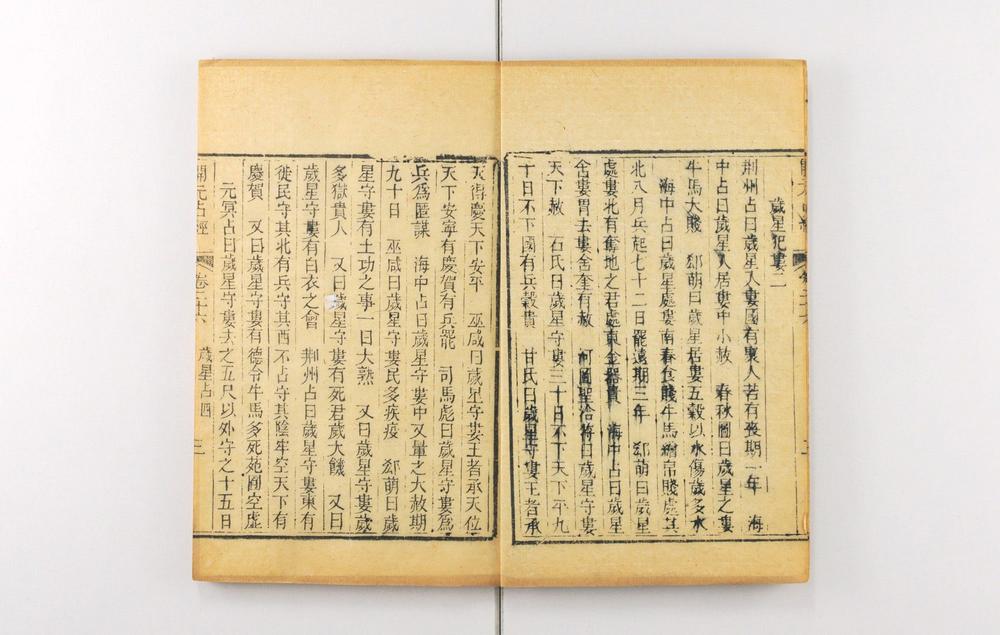 歲星犯婁二
荊州占曰歲星入婁國有人若有喪期一年 海
中占曰歲星入居婁中小赦 春秋圖曰歲星之婁
牛馬大賤 郄萌曰歲星居婁五穀以水傷歲多水
海中占曰歲星處婁南春食賤牛馬繒帛賤處其
北八月兵起七十二日罷遠期三年 郄萌曰歲星
處婁北有奪地之君處東金器貴 海中占曰歲星
舍婁胃去婁舍奎有赦 河圖聖洽符曰歲星守婁
天下赦 石氏曰歲星守婁三十日不下天下平九
十日不下國有兵穀貴 甘氏曰歲星守婁王者承
天得慶天下安平 巫咸曰歲星守婁王者承天位
天下安寧有慶賀有兵罷 司馬彪曰歲星守婁爲
兵爲匿謀 海中占曰歲星守婁中又暈之大赦期
九十日 巫咸曰歲星守婁民多疾疫 郄萌曰歲
星守婁有土功之事一曰大熟 又曰歲星守婁歲
多獄貴人 又曰歲星守婁有死君歲大饑 又曰
歲星守婁有白衣之會 荊州占曰歲星守婁東有
徙民守其北有兵守其西不占守其陰牢空天下有
慶賀 又曰歲星守婁有德令牛馬多死苑囿空虛
元冥占曰歲星守婁去之五尺以外守之十五日
開元占經 卷二十六 歲星占四 三